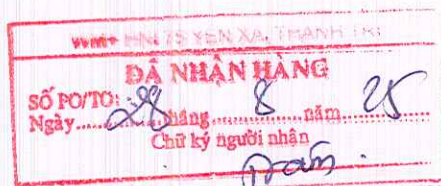 WM+ HNI 75 YÊN XÁ, THANH TRÌ
ĐÃ NHẬN HÀNG
SỐ PO/TO:
Ngày 28 tháng 8 năm 25
Chữ ký người nhận